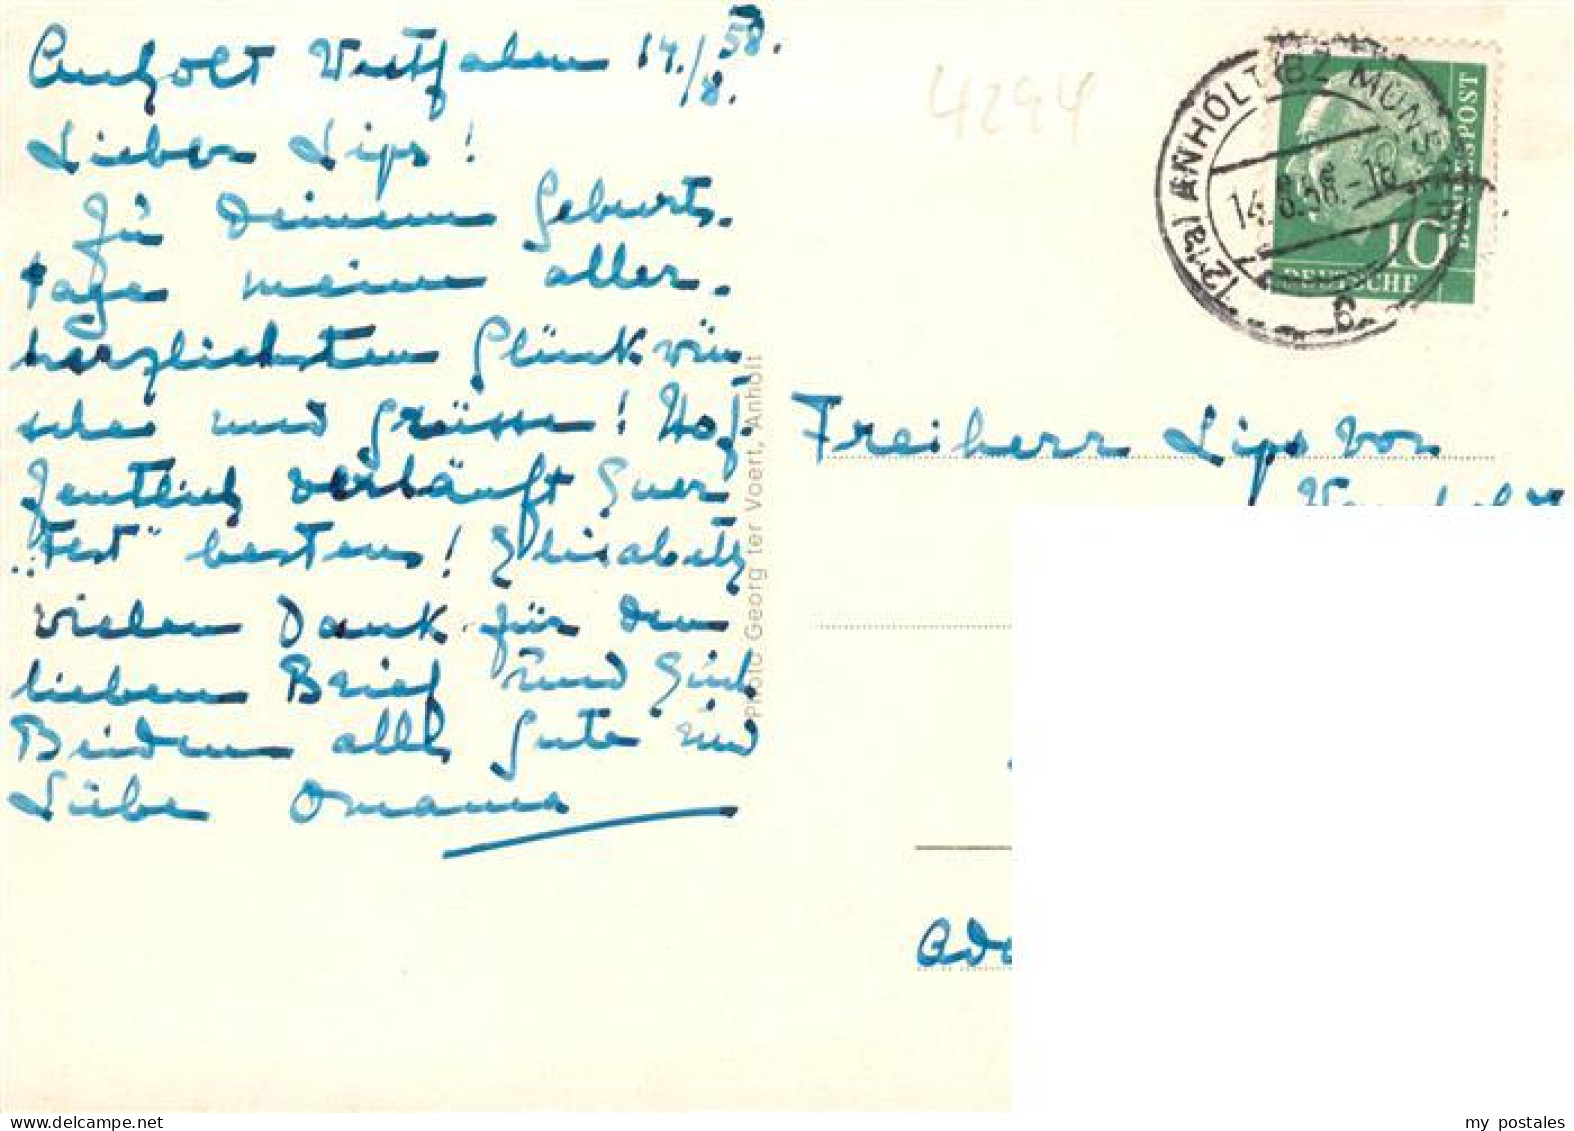 Anholt Westfalen 14./8. 58.
Lieber Lips!
Zu Deinem Geburts-
tage meine aller-
herzlichsten Glückwün
sche und Grüsse! Hof-
fentlich verläuft Euer
„Fest“ bestens! Elisabeth
vielen Dank für den
lieben Brief und Euch
Beiden alles Gute und
Liebe Omama
Photo Georg ter Voert, Anholt
4294
(21a) ANHOLT (BZ MÜNSTER)
14.8.58.-18
a
10
DEUTSCHE
BUNDESPOST
Freiherr Lips von
my postales